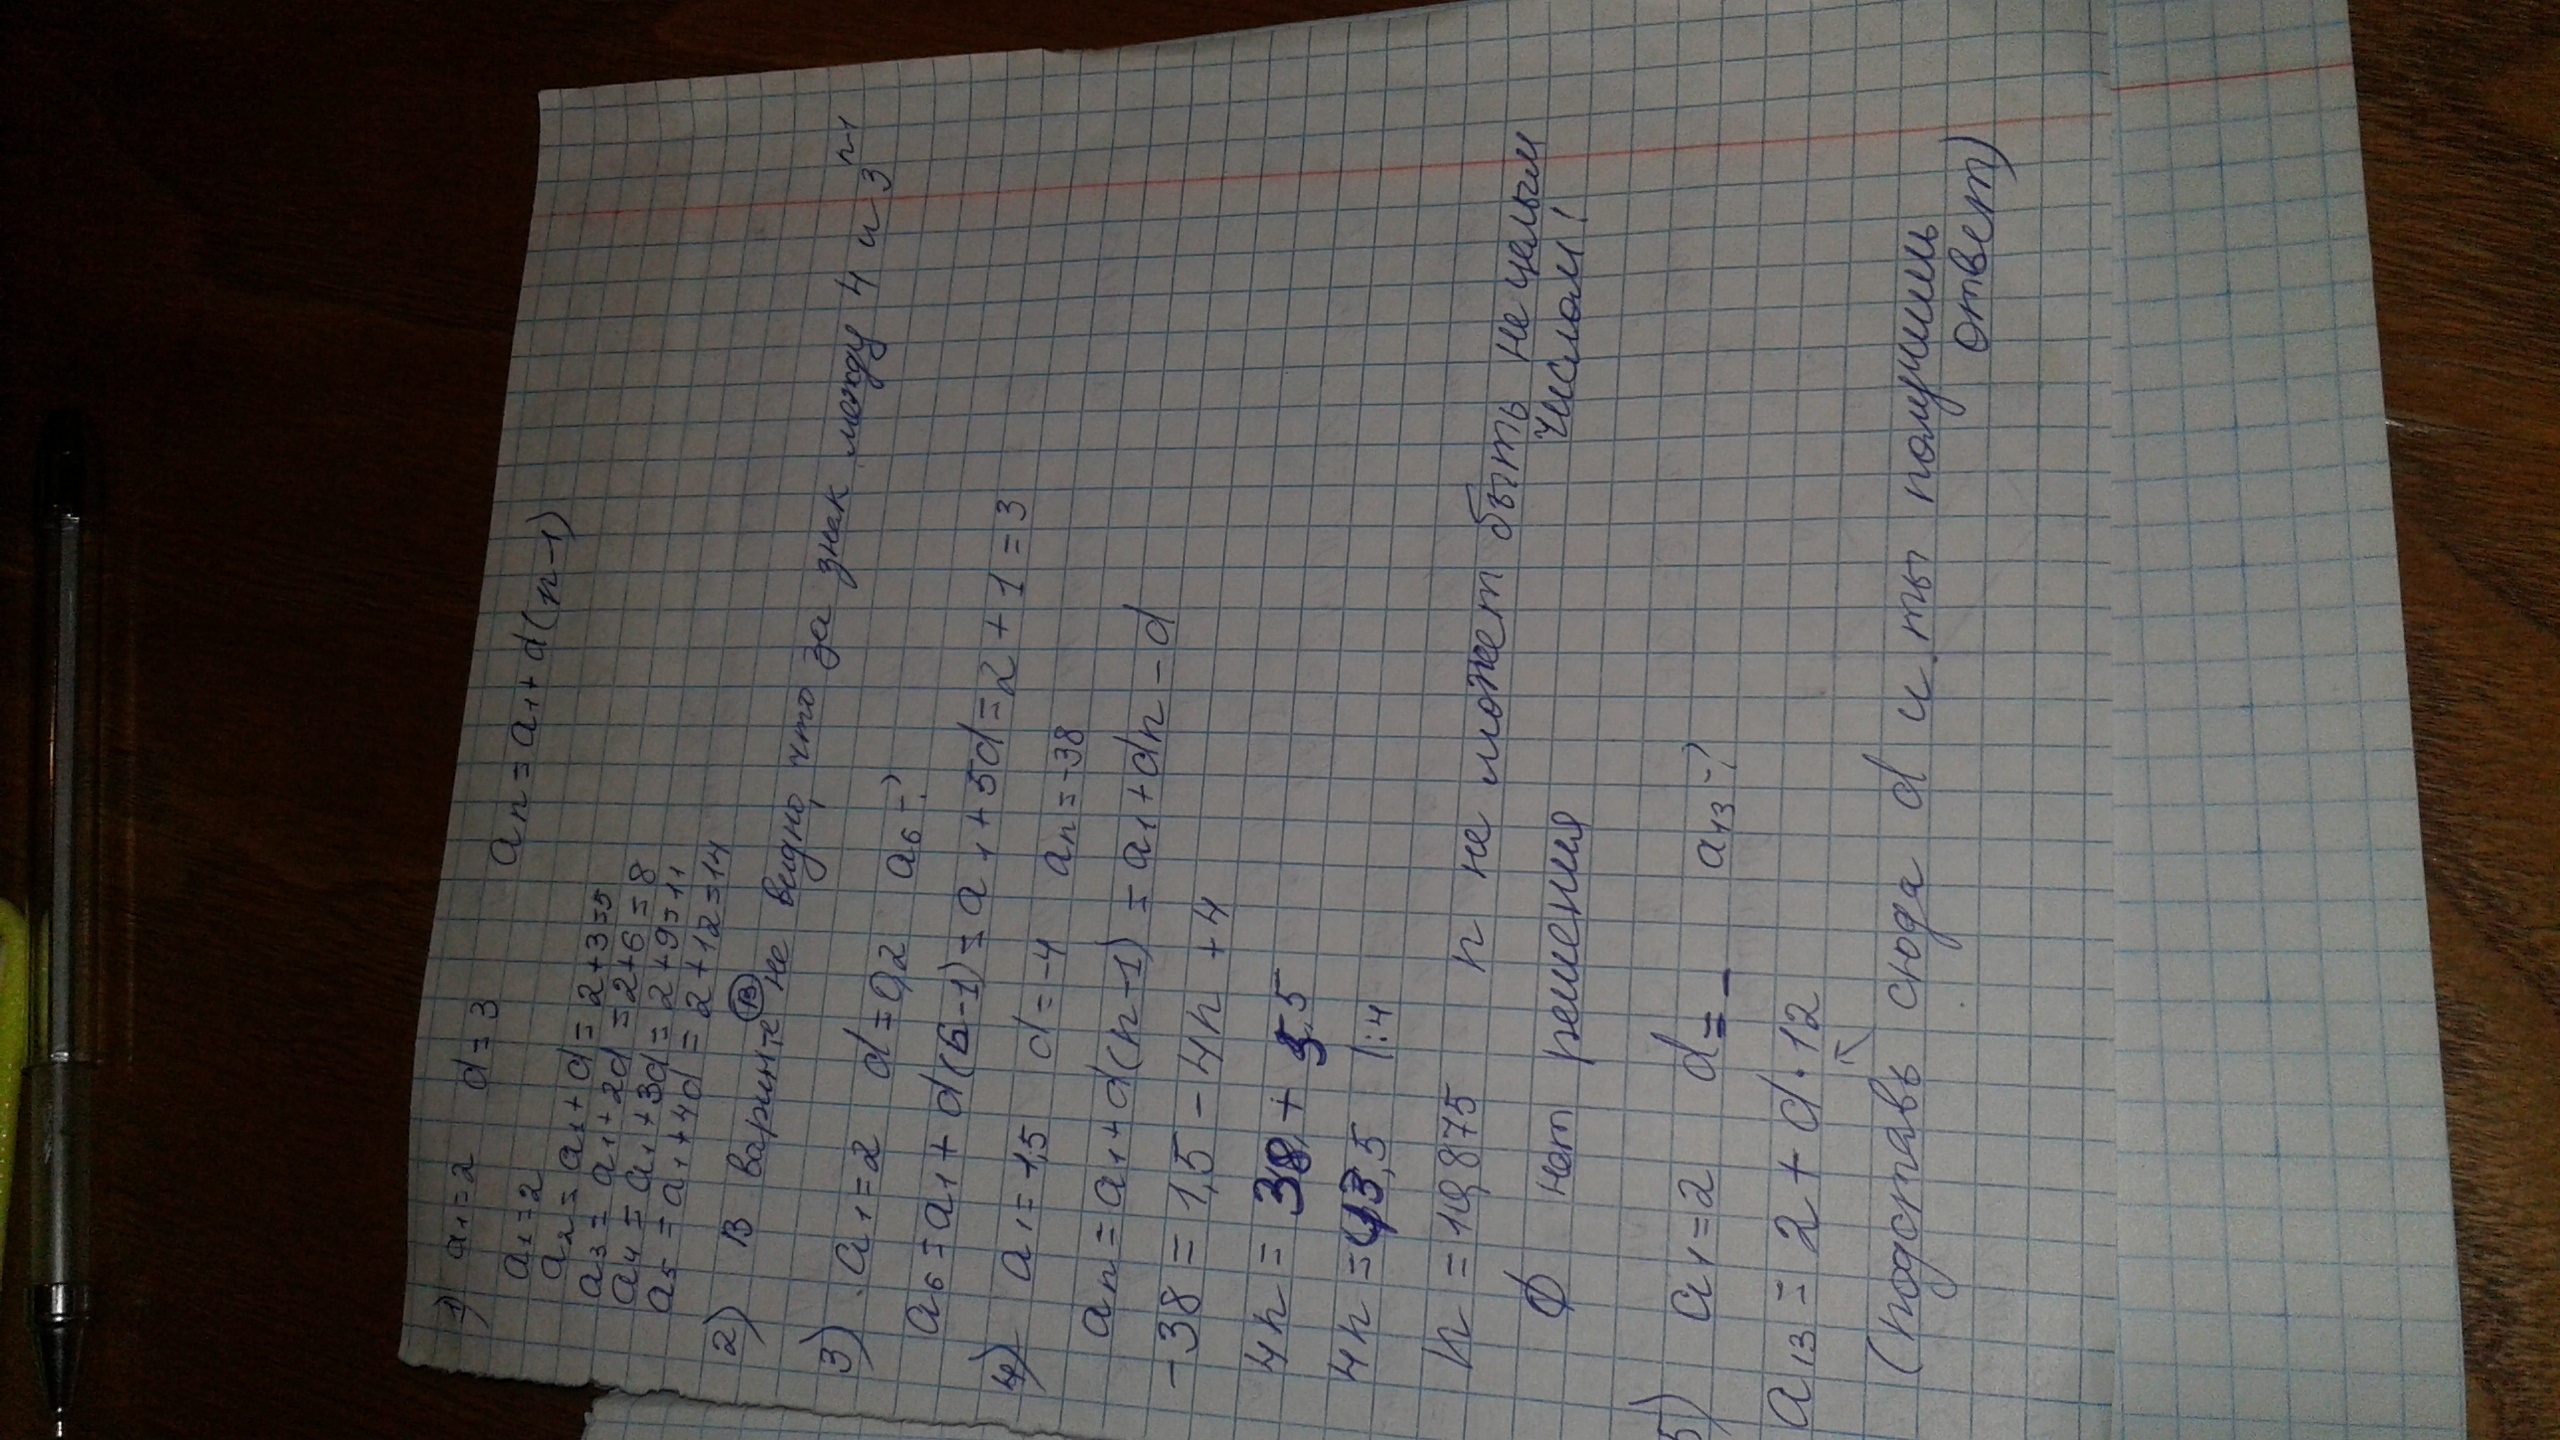 1) a₁=2 d=3
aₙ=a₁+d(n-1)
a₁=2
a₂=a₁+d=2+3=5
a₃=a₁+2d=2+6=8
a₄=a₁+3d=2+9=11
a₅=a₁+4d=2+12=14
2) В варинте В не видно, что за знак между 4 и 3ⁿ⁻¹
3) a₁=2 d=0,2 a₆-?
a₆=a₁+d(6-1)=a₁+5d=2+1=3
4) a₁=1,5 d=-4 aₙ=-38
aₙ=a₁+d(n-1)=a₁+dn-d
-38=1,5-4n+4
4n=38+5,5
4n=43,5 |:4
n=10,875 n не может быть не целым
числом!
∅ нет решения
5) a₁=2 d=- a₁₃-?
a₁₃=2+d·12
(подставь сюда d и ты получишь
ответ)